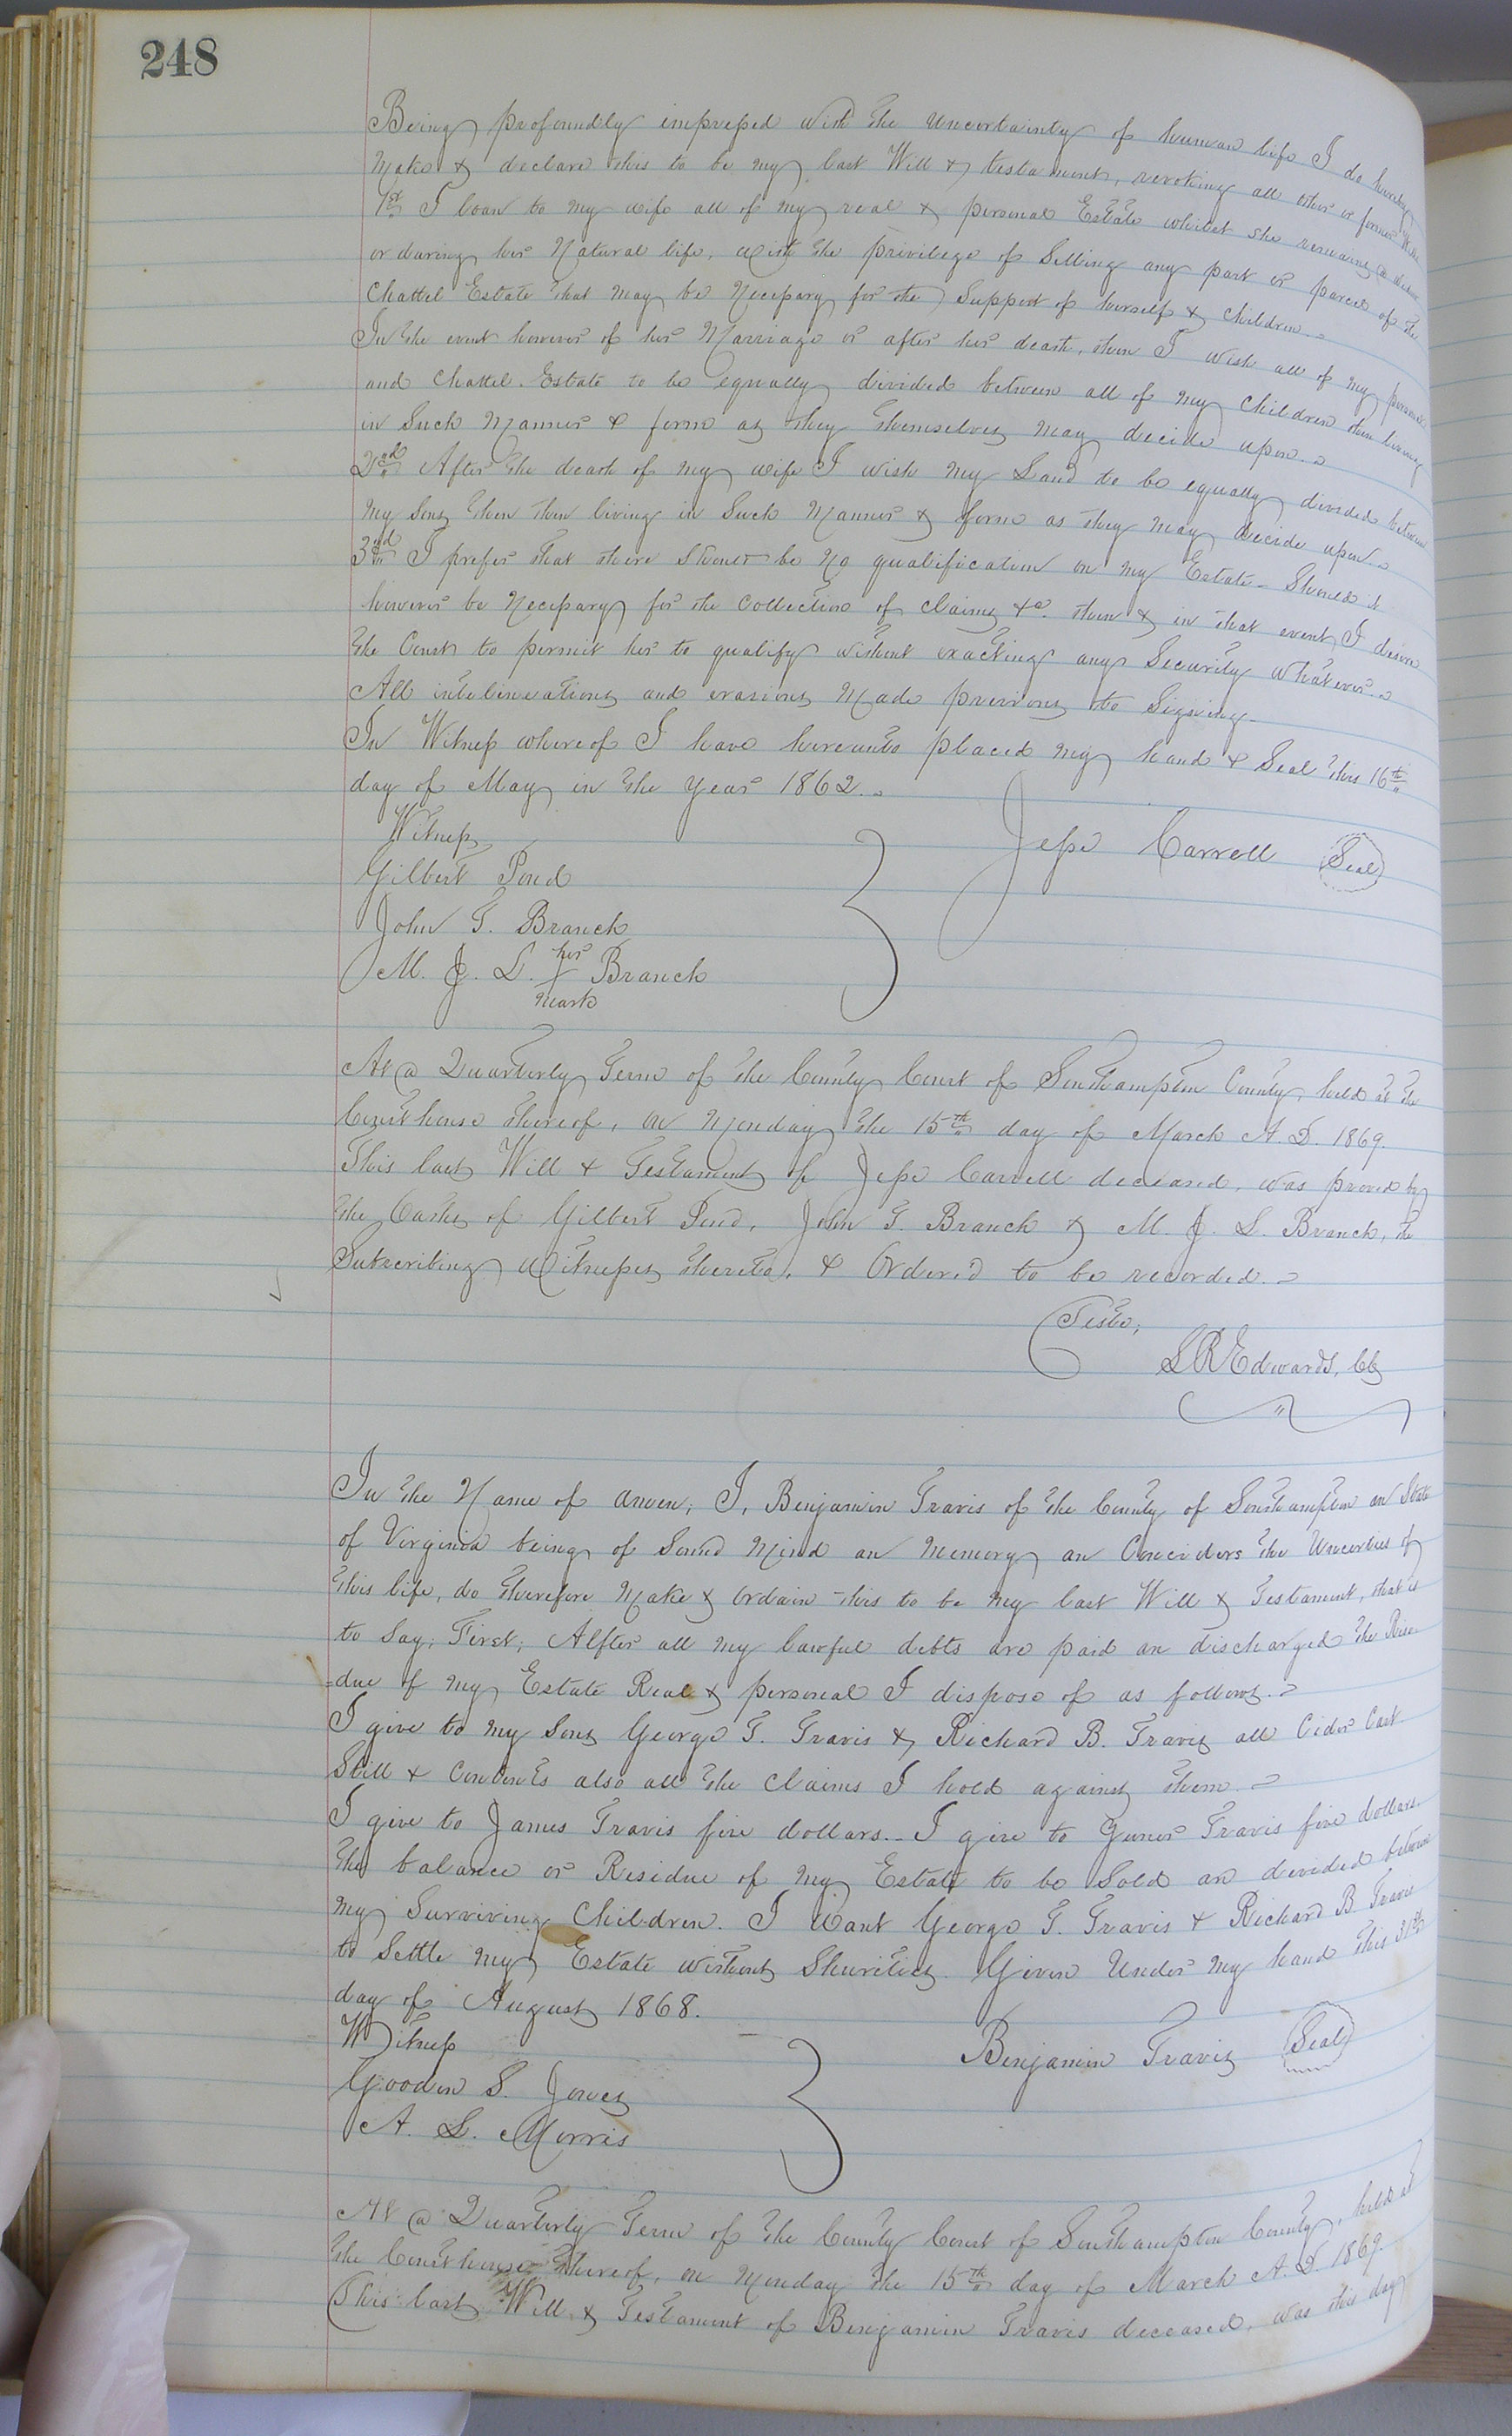 248
Being profoundly impressed with the uncertainty of human life I do hereby
Make & declare this to be my last Will & testament, revoking all other or former Wills
1st I loan to my wife all of my real & personal Estate whilst she remains a
or during her Natural life, with the privilege of Selling any part or parcel of the
Chattel Estate that may be Necessary for the Support of herself & children.
In the event however of her Marriage or after her death, then I wish all of my personal
and Chattel Estate to be equally divided between all of my children then living
in Such Manner & form as they themselves may decide upon.
2nd After the death of my wife I wish my Land to be equally divided between
My Sons then then living in Such Manner & form as they may decide upon.
3rd I prefer that there should be No qualification on my Estate - Should it
however be Necessary for the Collection of claims &c. then & in that event, I desire
the Court to permit her to qualify without exacting any Security whatever.
All interlineations and erasions Made previous to Signing.
In Witness whereof I have hereunto placed my hand & Seal this 16th
day of May in the year 1862.
Witness
Jesse Carrell Seal
Gilbert Pond
John T. Branch
M. J. L. her Branch
mark
At a Quarterly Term of the County Court of Southampton County, held at the
Courthouse thereof, on Monday the 15th day of March A. D. 1869.
This last Will & Testament of Jesse Carrell deceased, was proved by
the Oaths of Gilbert Pond, John T. Branch & M. J. L. Branch, the
Subscribing Witnesses thereto, & Order'd to be recorded.
Teste,
L R Edwards, Clk
In the Name of amen, I, Benjamin Travis of the County of Southampton an State
of Virginia being of Sound Mind an Memory an Conciders the of
this life, do therefore Make & Ordain this to be my last Will & Testament, that is
to Say, First, Alfter all my lawful debts are paid an discharged the Resi-
=due of my Estate Real & personal I dispose of as follows.
I give to my Sons George T. Travis & Richard B. Travis all Cider Cast
Still & Contents also all the claims I hold against them.
I give to James Travis five dollars. I give to Travis five dollars.
The balance or Residue of my Estate to be Sold an devided between
my Surviving Children. I want George T. Travis & Richard B. Travis
to Settle my Estate without Shurities. Given Under my hand this 31th
day of August 1868.
Witness
Benjamin Travis Seal
Gooden S. Jones
A. L. Morris
At a Quarterly Term of the County Court of Southampton County, held at
the Courthouse thereof, on Monday the 15th day of March A. D. 1869.
This last Will & Testament of Benjamin Travis deceased, was this day